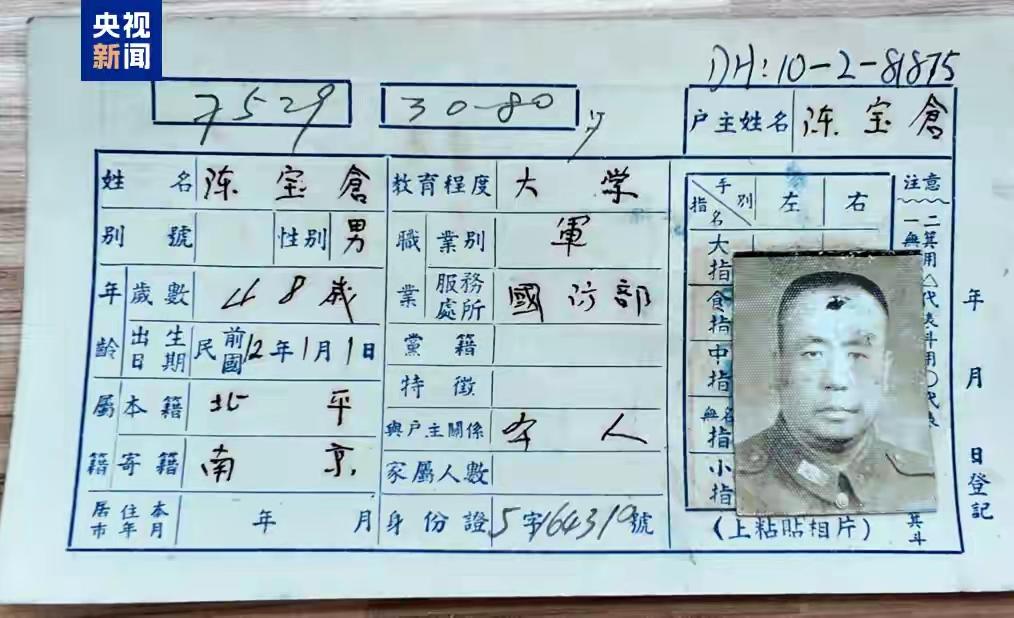 央视
新闻
DH:10-2-81875
7529
30-80
户主姓名 陈宝倉
姓名 陈宝倉
教育程度 大学
別號
性別 男
職業
業別 軍
年齡
歲數 48歲
服務處所 國防部
出生日期 民國前12年1月1日
黨籍
特徵
屬籍
本籍 北平
與户主關係 本人
寄籍 南京
家屬人數
居住本市年月 年 月
身份證 5字164319號
手別 指名 左 右
大指
食指
中指
無名指
小指
(上粘貼相片)
注意
一無
二箕用△代表斗用○代表
箕斗
年 月 日登記